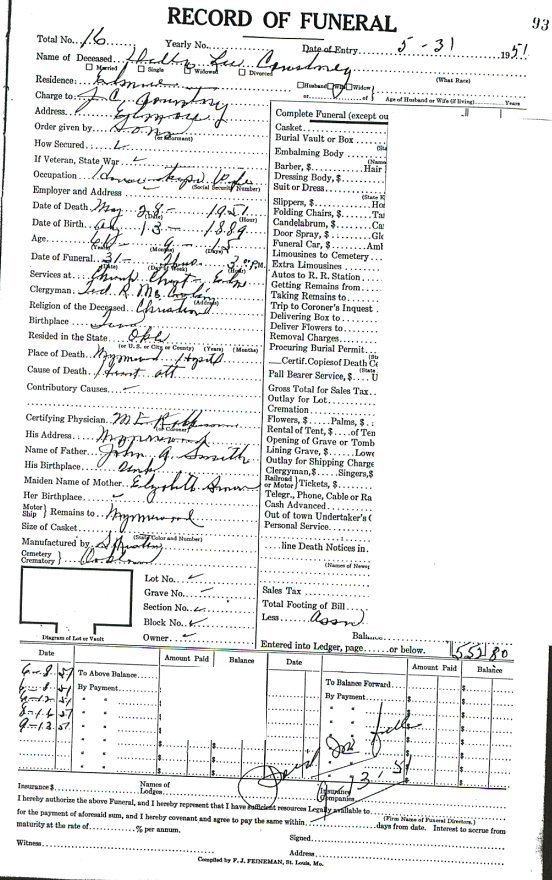 RECORD OF FUNERAL
93
Total No. 16 Yearly No. Date of Entry 5-31 1951
Name of Deceased Lee Courtney
Married Single Widowed Divorced (What Race)
Residence Husband Wife Widow
of Age of Husband or Wife (if living) Years
Charge to J. C. Courtney
Address
Order given by Son
(or Informant)
How Secured
If Veteran, State War
Occupation Housekeeper Wife
(Social Security Number)
Employer and Address
Date of Death May 28 - 1951
(Date) (Hour)
Date of Birth 13 - 1889
Age
(Years) (Months) (Days)
Date of Funeral 31 - Thur 3:00 P.M.
(Date) (Day of Week) (Hour)
Services at Church Christ
(Address)
Clergyman Ted R. Mc
Religion of the Deceased Christian
Birthplace
Resided in the State Okla
(or U. S. or City or County) (Years) (Months)
Place of Death Wynnewood Hospital
Cause of Death Heart Att
Contributory Causes
Certifying Physician M E
(or Coroner)
His Address Wynnewood
Name of Father John A. Smith
His Birthplace
Maiden Name of Mother Elizabeth
Her Birthplace
Motor Ship } Remains to Wynnewood
Size of Casket
(State Color and Number)
Manufactured by
Cemetery Crematory }
Lot No.
Grave No.
Section No.
Block No.
Owner
Diagram of Lot or Vault
Complete Funeral (except ou
Casket
Burial Vault or Box
(Sta
Embalming Body
(Name
Barber, $ Hair
Dressing Body, $
Suit or Dress
(State K
Slippers, $ Ho
Folding Chairs, $ Ta
Candelabrum, $ Ca
Door Spray, $ Glo
Funeral Car, $ Aml
Limousines to Cemetery
Extra Limousines
Autos to R. R. Station
Getting Remains from
Taking Remains to
Trip to Coroner's Inquest
Delivering Box to
Deliver Flowers to
Removal Charges
Procuring Burial Permit
(Stat
Certif. Copies of Death Ce
(State
Pall Bearer Service, $ U
Gross Total for Sales Tax
Outlay for Lot
Cremation
Flowers, $ Palms, $
Rental of Tent, $ of Ten
Opening of Grave or Tomb
Lining Grave, $ Lowe
Outlay for Shipping Charge
Clergyman, $ Singers, $
Railroad or Motor } Tickets, $
Telegr., Phone, Cable or Ra
Cash Advanced
Out of town Undertaker's C
Personal Service
line Death Notices in
(Names of Newsp
Sales Tax
Total Footing of Bill
Less Assn
Balance
Entered into Ledger, page or below. 552 80
Date Amount Paid Balance Date Amount Paid Balance
6-8-51 To Above Balance To Balance Forward
By Payment By Payment
Paid In full
Insurance $ Names of Lodges Insurance Companies
I hereby authorize the above Funeral, and I hereby represent that I have sufficient resources Legally available to
(Firm Name of Funeral Directors.)
for the payment of aforesaid sum, and I hereby covenant and agree to pay the same within days from date. Interest to accrue from
maturity at the rate of % per annum. Signed
Witness Address
Compiled by F. J. FEINEMAN, St. Louis, Mo.